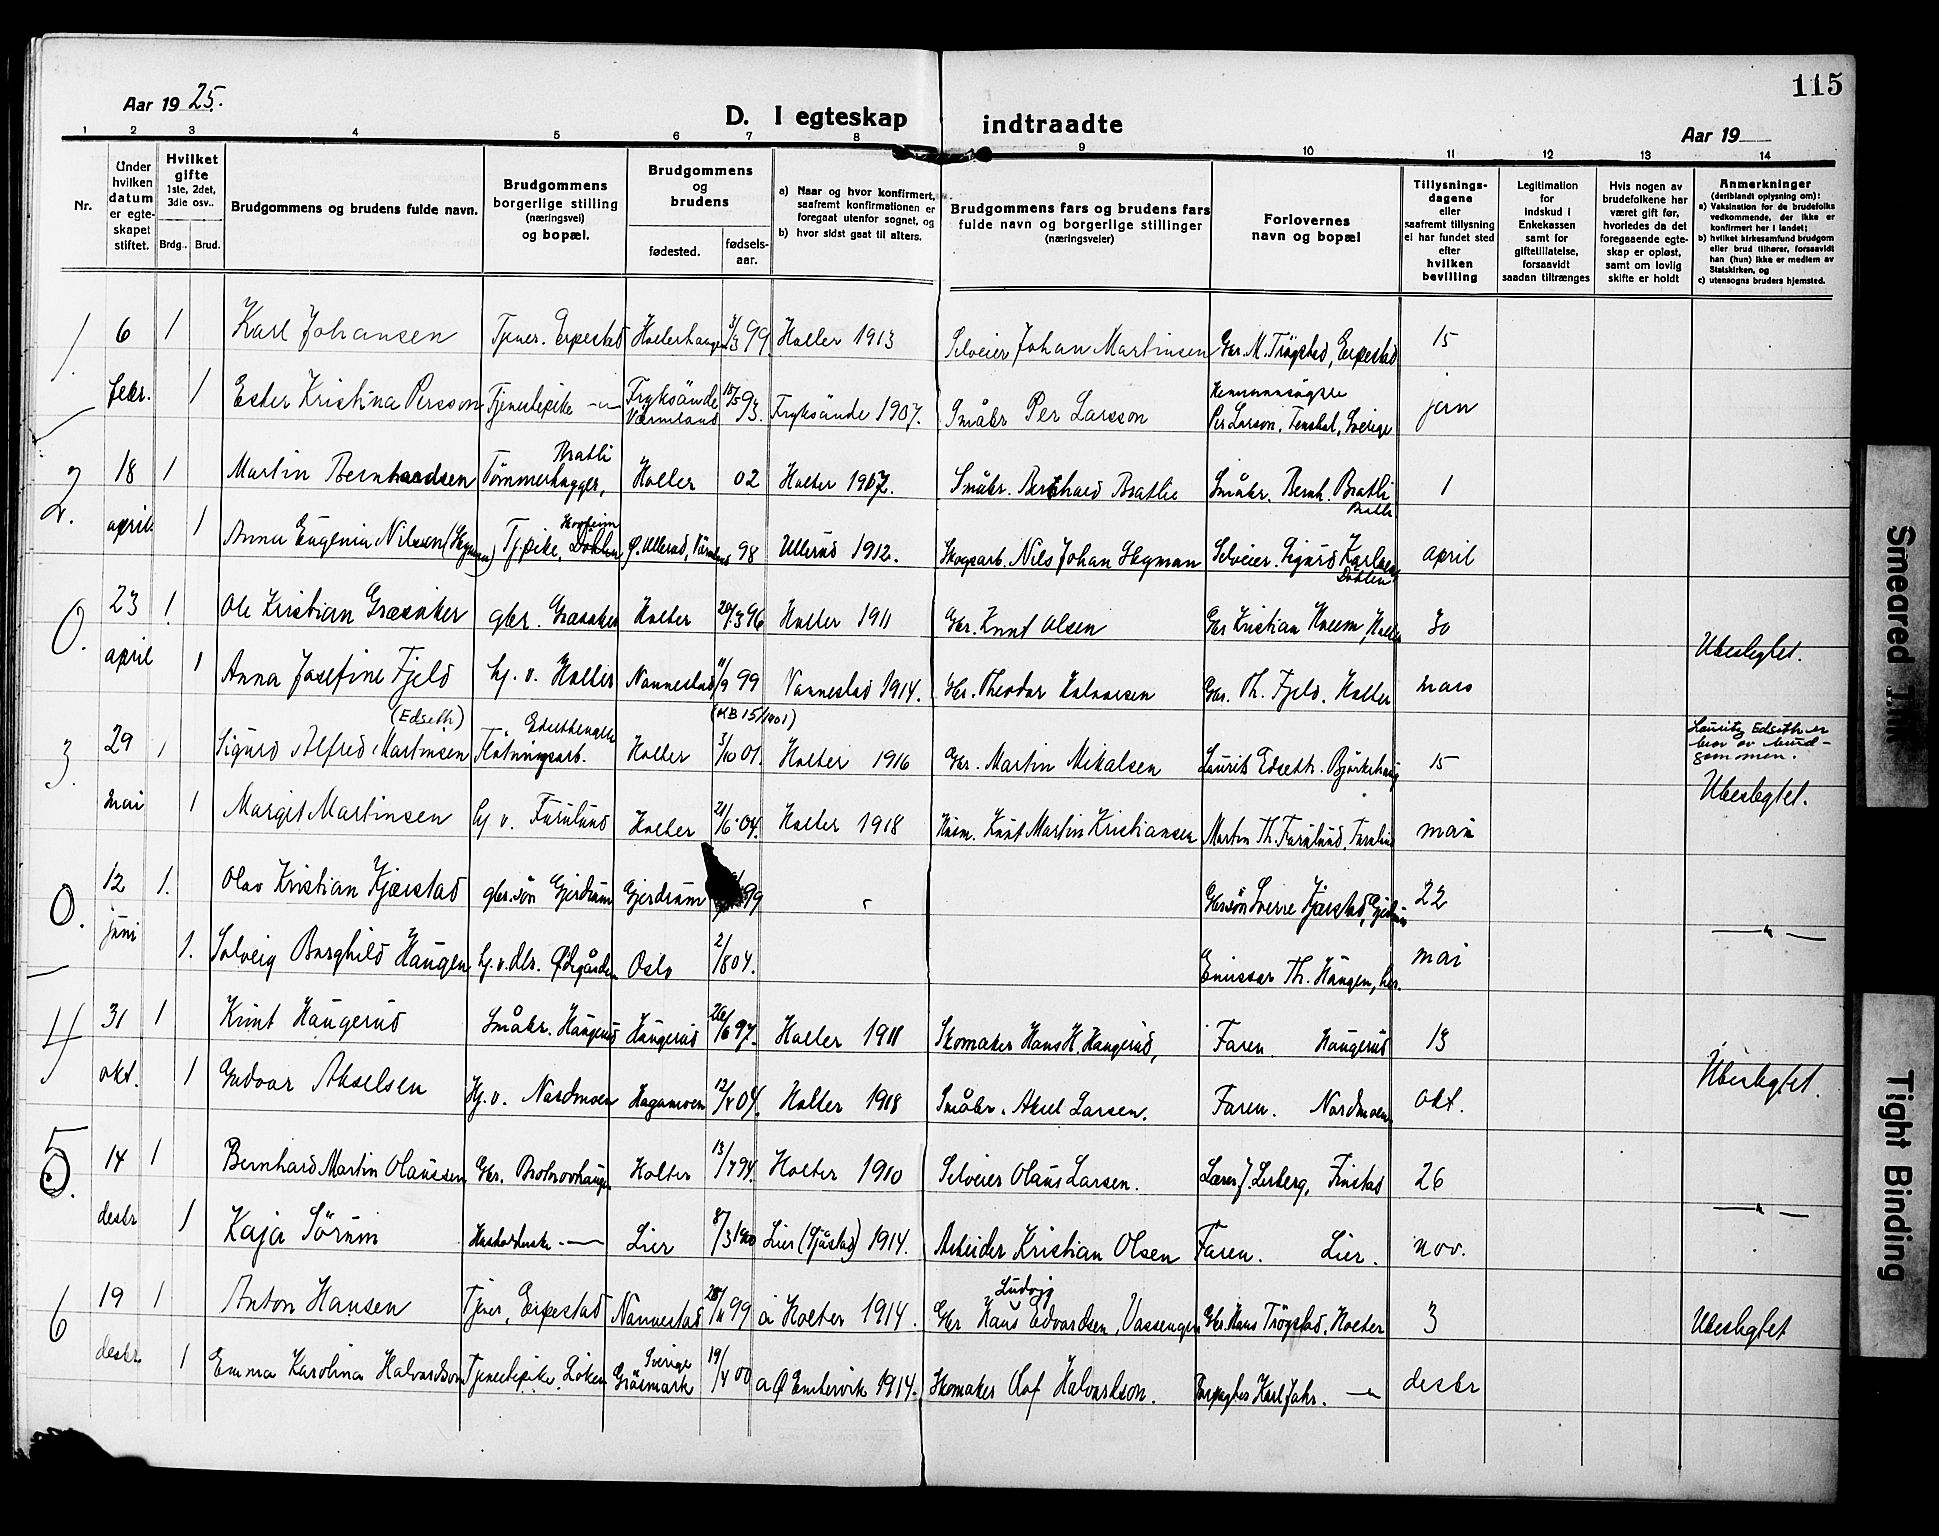 115
Aar 1925.
D. I egteskap indtraadte
Aar 19
1 2 3 4 5 6 7 8 9 10 11 12 13 14
Nr.
Under hvilken datum er egteskapet stiftet.
Hvilket gifte 1ste, 2det, 3die osv..
Brdg. Brud.
Brudgommens og brudens fulde navn.
Brudgommens borgerlige stilling (næringsvei) og bopæl.
Brudgommens og brudens
fødested. fødsels-aar.
a) Naar og hvor konfirmert, saafremt konfirmationen er foregaat utenfor sognet, og
b) hvor sidst gaat til alters.
Brudgommens fars og brudens fars fulde navn og borgerlige stillinger (næringsveier)
Forlovernes navn og bopæl
Tillysnings-dagene eller saafremt tillysning ei har fundet sted efter hvilken bevilling
Legitimation for indskud i Enkekassen samt for giftetillatelse, forsaavidt saadan tiltrænges
Hvis nogen av brudefolkene har været gift før, hvorledes da det foregaaende egteskap er opløst, samt om lovlig skifte er holdt
Anmerkninger (deriblandt oplysning om):
a) Vaksination for de brudefolks vedkommende, der ikke er konfirmert her i landet;
b) hvilket kirkesamfund brudgom eller brud tilhører, forsaavidt han (hun) ikke er medlem av Statskirken, og
c) utensogns bruders hjemsted.
1. 6 1 Karl Johansen Tjener. Erpestad Holterhaugen 3/3 99 Holter 1913 Selveier Johan Martinsen Gbr. M. Trøgstad, Erpestad 15
febr. 1 Ester Kristina Persson Tjenestepike -"- Fryksände Värmland 18/5 93. Fryksände 1907. Småbr Per Larsson Per Larson, Sverige jan
2. 18 1 Martin Bernhardsen Tømmerhugger, Bratli Holter 02 Holter 1907. Småbr. Bernhard Bratlie Småbr. Bernh. Bratli Bratli 1
april 1 Anna Eugenia Nilsson (Hegman) Tj.pike, Døhlen Ø. Ullerud, 98 Ullerud 1912. Skogsarb. Nils Johan Hegman Selveier. Sigurd Karlsen Døhlen april
0. 23 1. Ole Kristian Græsaker gbr. Græsaker Holter 20/3 96 Holter 1911 Gbr. Knut Olsen Gbr Kristian Kneem, Holter 30
april 1 Anna Josefine Fjeld hj. v. Holter Nannestad 11/9 99 Nannestad 1914. Gbr. Theodor Gbr. Th. Fjeld. Holter mars Ubeslegtet.
3. 29 1 Sigurd Alfred Martinsen (Edseth) Fløtningsarb. Holter 3/10 01. Holter 1916 Gbr. Martin Mikalsen Laurits Edseth. Bjørkehaug 15 Lauritz Edseth er bror av brudgommen.
mai 1 Margit Martinsen hj v. Furulund Holter 21/6 04. Holter 1918 Husm. Knut Martin Kristiansen Martin Th. Furulund, Furulund mai Ubeslegtet.
0. 12 1. Olav Kristian Kjærstad gbr.søn Gjerdrum Gjerdrum 99 Gbr.søn Sverre Kjærstad, Gjerdrum 22
juni 1. Solveig Borghild Haugen hj. v. Oslo 2/8 04. Emissær Th. Haugen, her. mai -"-
4 31 1 Knut Haugerud Småbr. Haugerud Haugerud 26/6 97. Holter 1911 Skomaker Hans H. Haugerud, Faren Haugerud 13
okt. 1 Gudvor Akselsen Hj. v. Nordmoen Hagamoen 12/5 04. Holter 1918 Småbr. Aksel Larsen. Faren. Nordmoen okt. Ubeslegtet.
5 0. 14 1 Bernhard Martin Olaussen Gbr. Holter 13/7 94. Holter 1910 Selveier Olaus Larsen. Lærer J. Lerberg, Finstad 26
desbr 1 Kaja Sørum -"- Lier 8/3 1900 Lier (Sjåstad) 1914. Arbeider Kristian Olsen Faren. Lier. nov. -"-
6 19 1 Anton Hansen Tjener, Erpestad Nannestad 28/11 99 a Holter 1914. Gbr Hans Ludvig Edvardsen, Vassengen Gbr. Hans Trøgstad, Holter 3 Ubeslegtet
desbr. 1 Emma Karolina Halvardson Tjenestepike, Løken Sverige Gräsmark 19/4 00 a Ø Emtervik 1914. Skomaker Olof Halvardson. Karl Johr. -"- desbr
Smeared Ink
Tight Binding